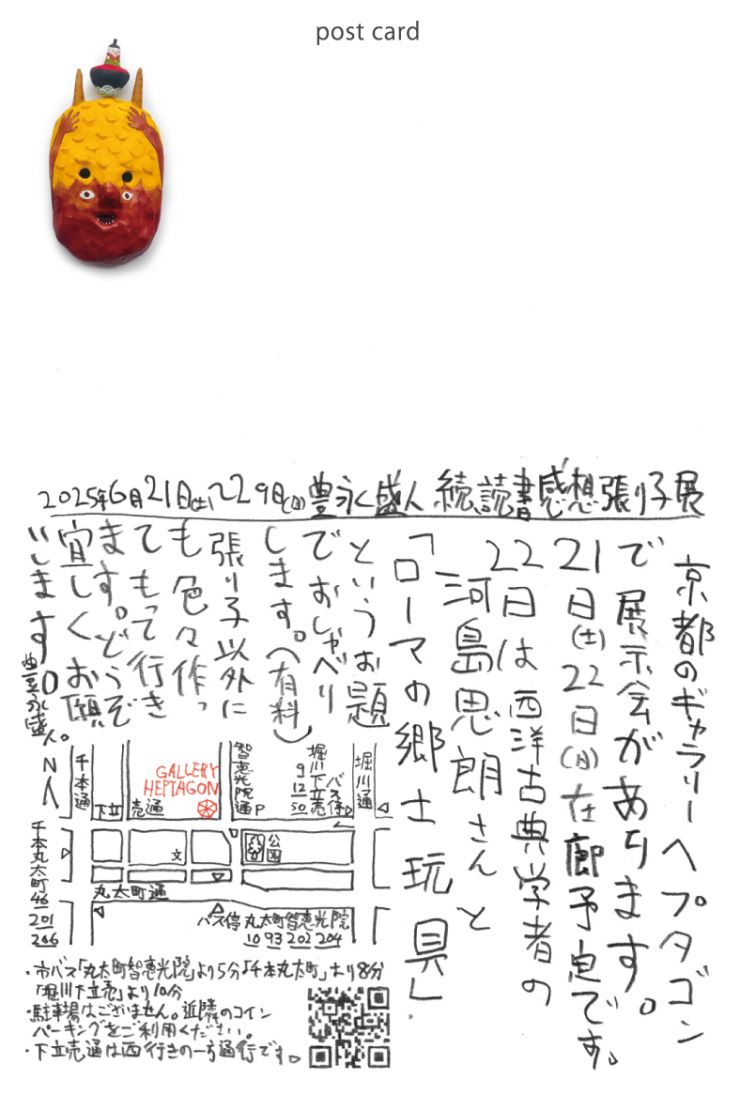 post card
2025年6月21日(土)〜29日(日)豊永盛人 続、読書感想張り子展
京都のギャラリーヘプタゴン
で展示会があります。
21日(土)22日(日)在廊予定です。
22日は西洋古典学者の
河島思朗さんと
「ローマの郷土玩具」
というお題
でおしゃべり
します。(有料)
張り子以外に
も色々作っ
てもって行き
ます。どうぞ
宜しくお願
いします。
豊永盛人。
N
千本通
下立売通
GALLERY
HEPTAGON
智恵光院通
P
堀川下立売
バス停
9
12
50
堀川通
千本丸太町
46
201
206
文
公園
丸太町通
バス停 丸太町智恵光院
10 93 202 204
・市バス「丸太町智恵光院」より5分「千本丸太町」より8分
「堀川下立売」より10分
・駐車場はございません。近隣のコイン
パーキングをご利用ください。
・下立売通は西行きの一方通行です。